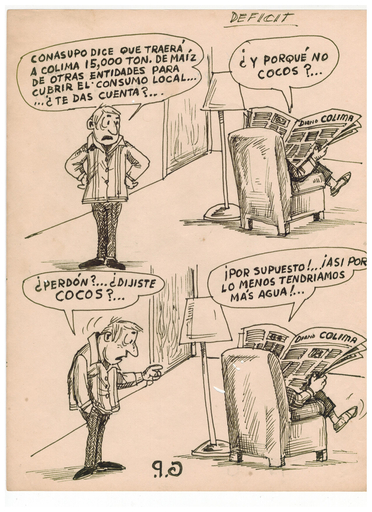 DEFICIT
CONASUPO DICE QUE TRAERÁ
A COLIMA 15,000 TON. DE MAÍZ
DE OTRAS ENTIDADES PARA
CUBRIR EL CONSUMO LOCAL...
...¿TE DAS CUENTA?...
¿Y PORQUÉ NO
COCOS?...
DIARIO COLIMA
¿PERDÓN?...¿DIJISTE
COCOS?...
¡POR SUPUESTO!...¡ASI POR
LO MENOS TENDRÍAMOS
MÁS AGUA!...
DIARIO COLIMA